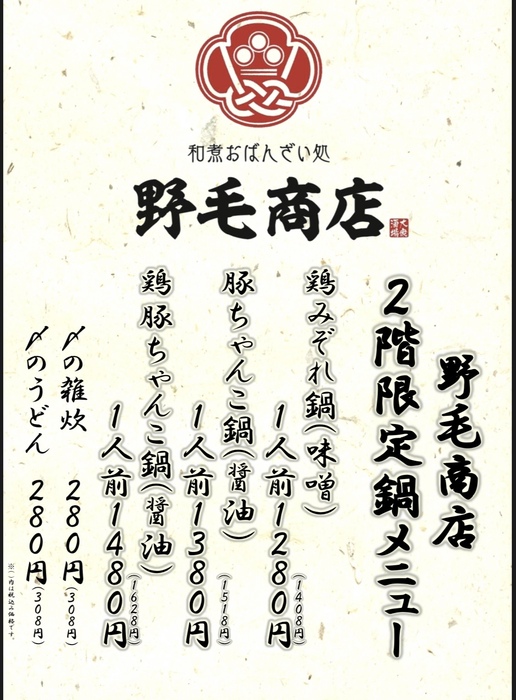 和煮おばんざい処
野毛商店
大衆
酒場
野毛商店
2階限定鍋メニュー
鶏みぞれ鍋(味噌)
1人前1280円(1408円)
豚ちゃんこ鍋(醤油)
1人前1380円(1518円)
鶏豚ちゃんこ鍋(醤油)
1人前1480円(1628円)
〆の雑炊 280円(308円)
〆のうどん 280円(308円)
※()内は税込み価格です。